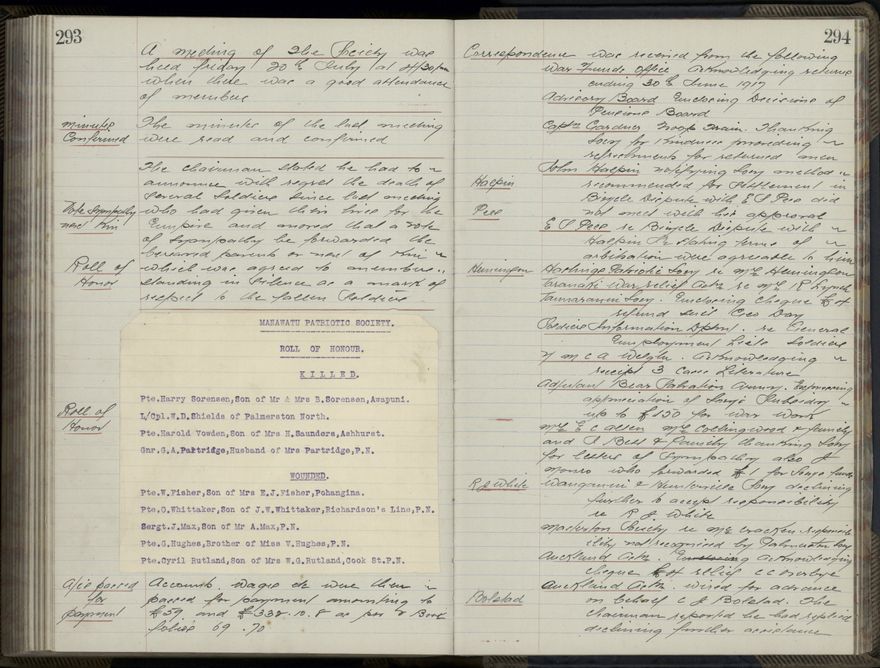 293
A meeting of the Society was
held Friday 20th July at 4/30 pm
when there was a good attendance
of members
Minutes
Confirmed
The minutes of the last meeting
were read and confirmed
The chairman stated he had to
announce with regret the death of
several Soldiers since last meeting
Vote Sympathy
next Kin
who had given their lives for the
Empire and moved that a vote
of sympathy be forwarded the
bereaved parents or next of Kin
Roll of
Honor
which was agreed to members
standing in silence as a mark of
respect to the fallen Soldiers
MANAWATU PATRIOTIC SOCIETY.
ROLL OF HONOUR.
KILLED.
Pte.Harry Sorensen,Son of Mr & Mrs B.Sorensen,Awapuni.
L/Cpl.W.D.Shields of Palmerston North.
Roll of
Honor
Pte.Harold Vowden,Son of Mrs H.Saunders,Ashhurst.
Gnr.G.A.Partridge,Husband of Mrs Partridge,P.N.
WOUNDED.
Pte.W.Fisher,Son of Mrs E.J.Fisher,Pohangina.
Pte.O.Whittaker,Son of J.W.Whittaker,Richardson's Line,P.N.
Sergt.J.Max,Son of Mr A.Max,P.N.
Pte.G.Hughes,Brother of Miss V.Hughes,P.N.
Pte.Cyril Rutland,Son of Mrs W.G.Rutland,Cook St.P.N.
a/cs passed
for
payment
Accounts, wages etc were then
passed for payment amounting to
£59 and £338.10.8 as per Book
folios 69.70
294
Correspondence was received from the following
War Funds Office acknowledging returns
ending 30th June 1917
Advisory Board Enclosing Decisions of
Pensions Board
Captn Gardner Troop Train. Thanking
Socy for kindness providing
refreshments for returned men
John Halpin notifying Socy method
Halpin
recommended for settlement in
Bicycle Dispute with E S Pees did
Pees
not meet with his approval
E S Pees re Bicycle Dispute with
Halpin stating terms of
arbitration were agreeable to him
Hennington
Hastings Patriotic Socy re Mrs Hennington
Taranaki War Relief Assn re Mrs R Lynch
Tamaranui Socy. Enclosing cheque
refund
Soldiers Information Dptmt. re General
Employment Lists Soldiers
Y M C A Welgtn. Acknowledging
receipt 3 Cases Literature
Adjutant Bear Salvation Army. Expressing
appreciation of Socys Subsidy
up to £150 for war work
Mrs E C Allen Mrs Collingwood & family
and R Bell & Family thanking Socy
for letters of Sympathy also J
Munro who forwarded £1 for Socys funds
R J White
Wanganui & Hunterville Socy declining
further to accept responsibility
re R J White
Masterton Society re Mrs Cracken responsi
bility not recognised by Palmerston Socy
Auckland Assn acknowledging
cheque relief
Auckland Assn. wired for advance
Bolstad
on behalf C J Bolstad. The
chairman reported he had replied
declining further assistance